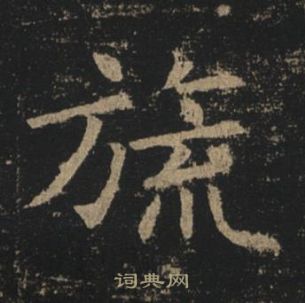 旒
词典网